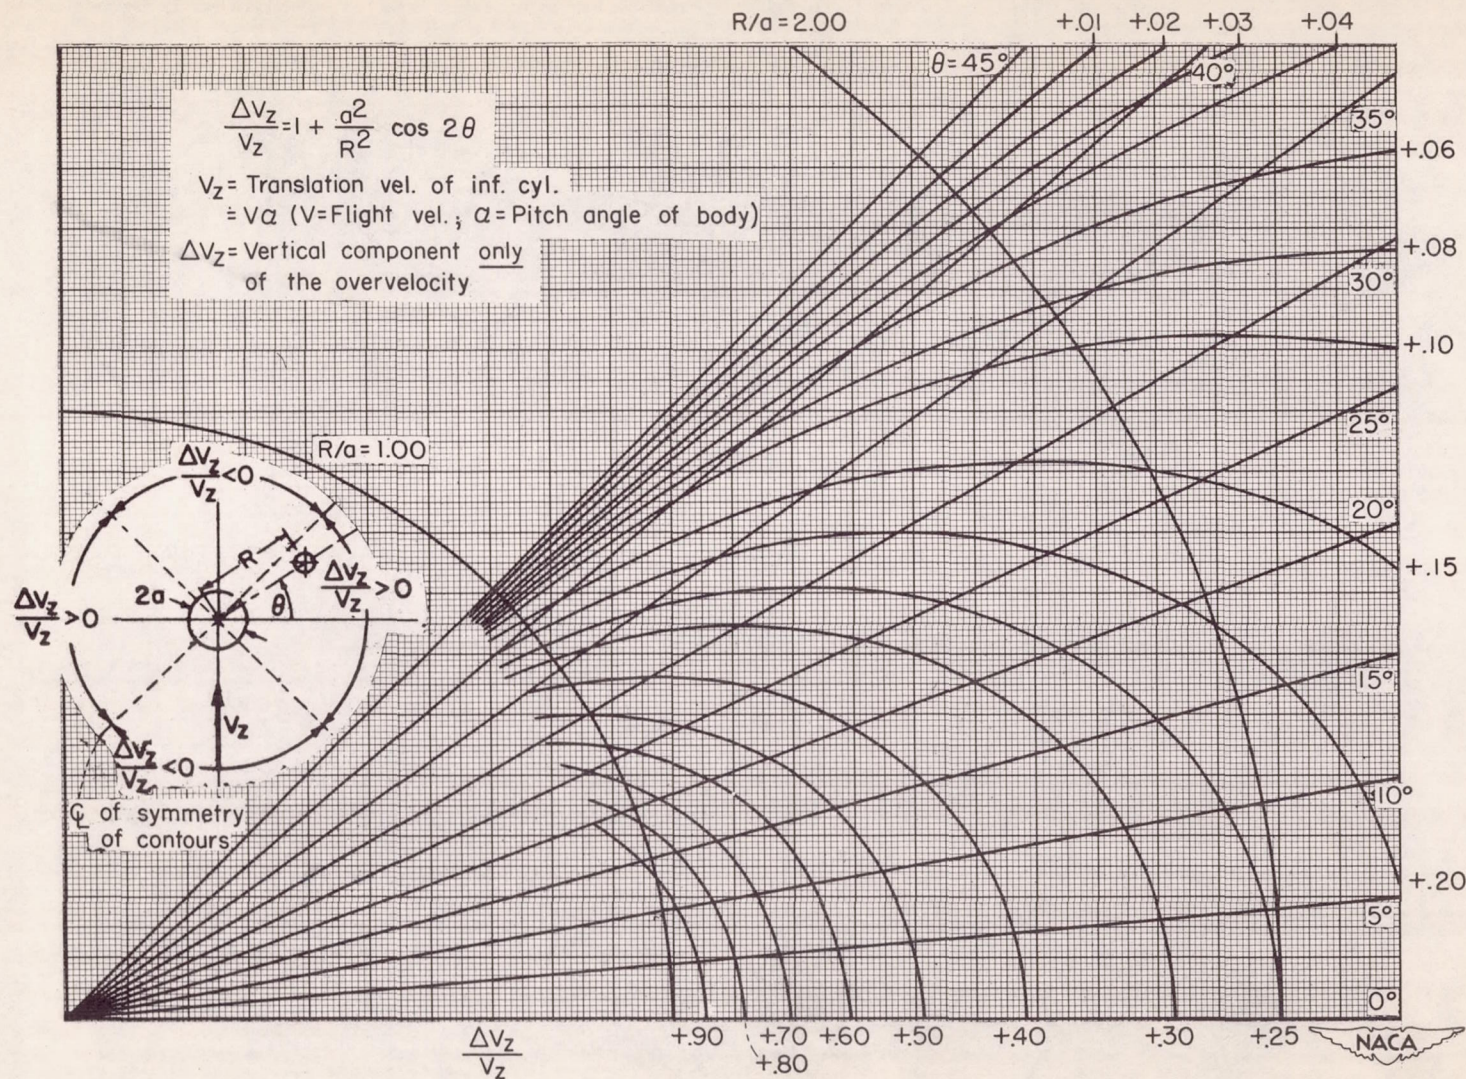 R/a = 2.00
+.01
+.02
+.03
+.04
θ = 45°
40°
35°
+.06
+.08
30°
+.10
25°
20°
+.15
15°
10°
+.20
5°
0°
ΔVz/Vz = 1 + a²/R² cos 2θ
Vz = Translation vel. of inf. cyl.
= Vα (V = Flight vel.; α = Pitch angle of body)
ΔVz = Vertical component only
of the overvelocity
R/a = 1.00
ΔVz/Vz < 0
R
ΔVz/Vz > 0
2a
θ
ΔVz/Vz > 0
Vz
ΔVz/Vz < 0
℄ of symmetry
of contours
ΔVz/Vz
+.90
+.80
+.70
+.60
+.50
+.40
+.30
+.25
NACA